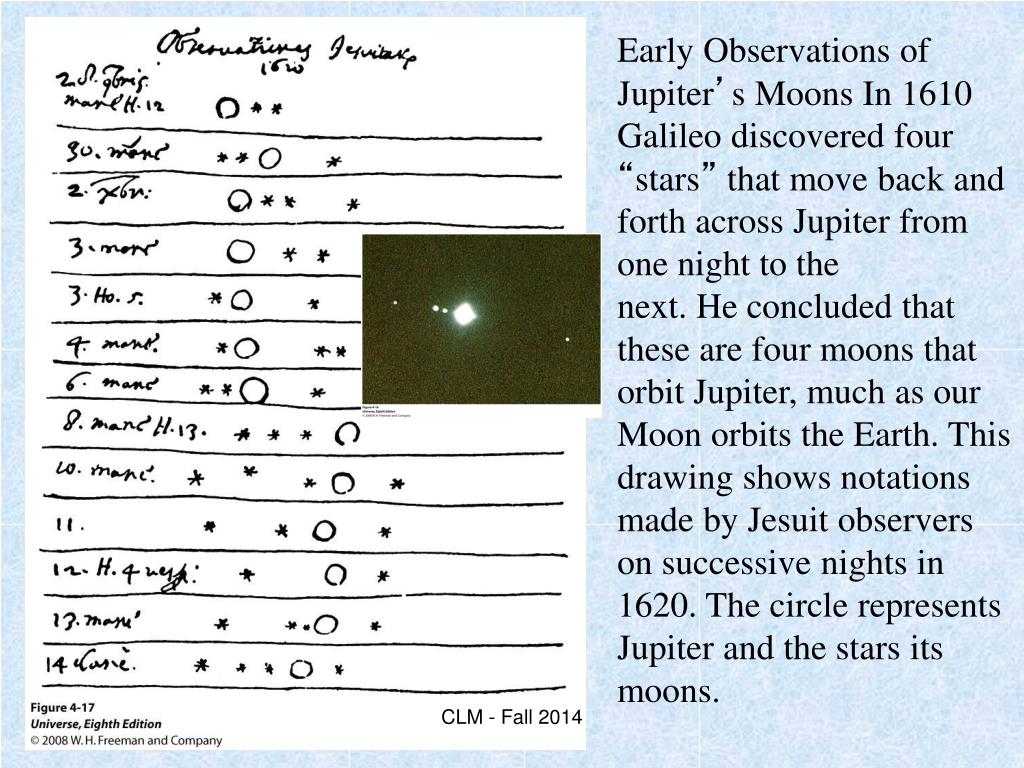 Observationes
1620
mane H. 12
30. mane
2. xbr:
3. mane
3. Ho. 5.
4. mane.
6. mane
8. mane H. 13.
10. mane.
11.
12. H. 4 vesp:
13. mane
14
Figure 4-16
Universe, Eighth Edition
© 2008 W. H. Freeman and Company
Figure 4-17
Universe, Eighth Edition
© 2008 W. H. Freeman and Company
CLM - Fall 2014
Early Observations of
Jupiter’s Moons In 1610
Galileo discovered four
“stars” that move back and
forth across Jupiter from
one night to the
next. He concluded that
these are four moons that
orbit Jupiter, much as our
Moon orbits the Earth. This
drawing shows notations
made by Jesuit observers
on successive nights in
1620. The circle represents
Jupiter and the stars its
moons.